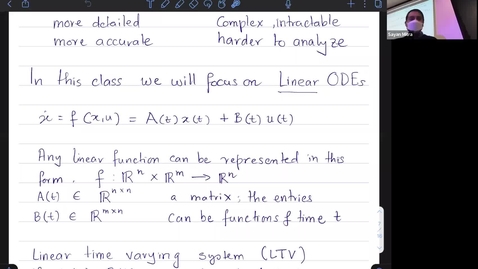 more detailed Complex, Intractable
more accurate harder to analyze
In this class we will focus on Linear ODEs
ẋ = f(x,u) = A(t)x(t) + B(t)u(t)
Any linear function can be represented in this
form. f : ℝⁿ × ℝᵐ → ℝⁿ
A(t) ∈ ℝⁿˣⁿ a matrix; the entries
B(t) ∈ ℝᵐˣⁿ can be functions of time t
Linear time varying system (LTV)
Sayan Mitra